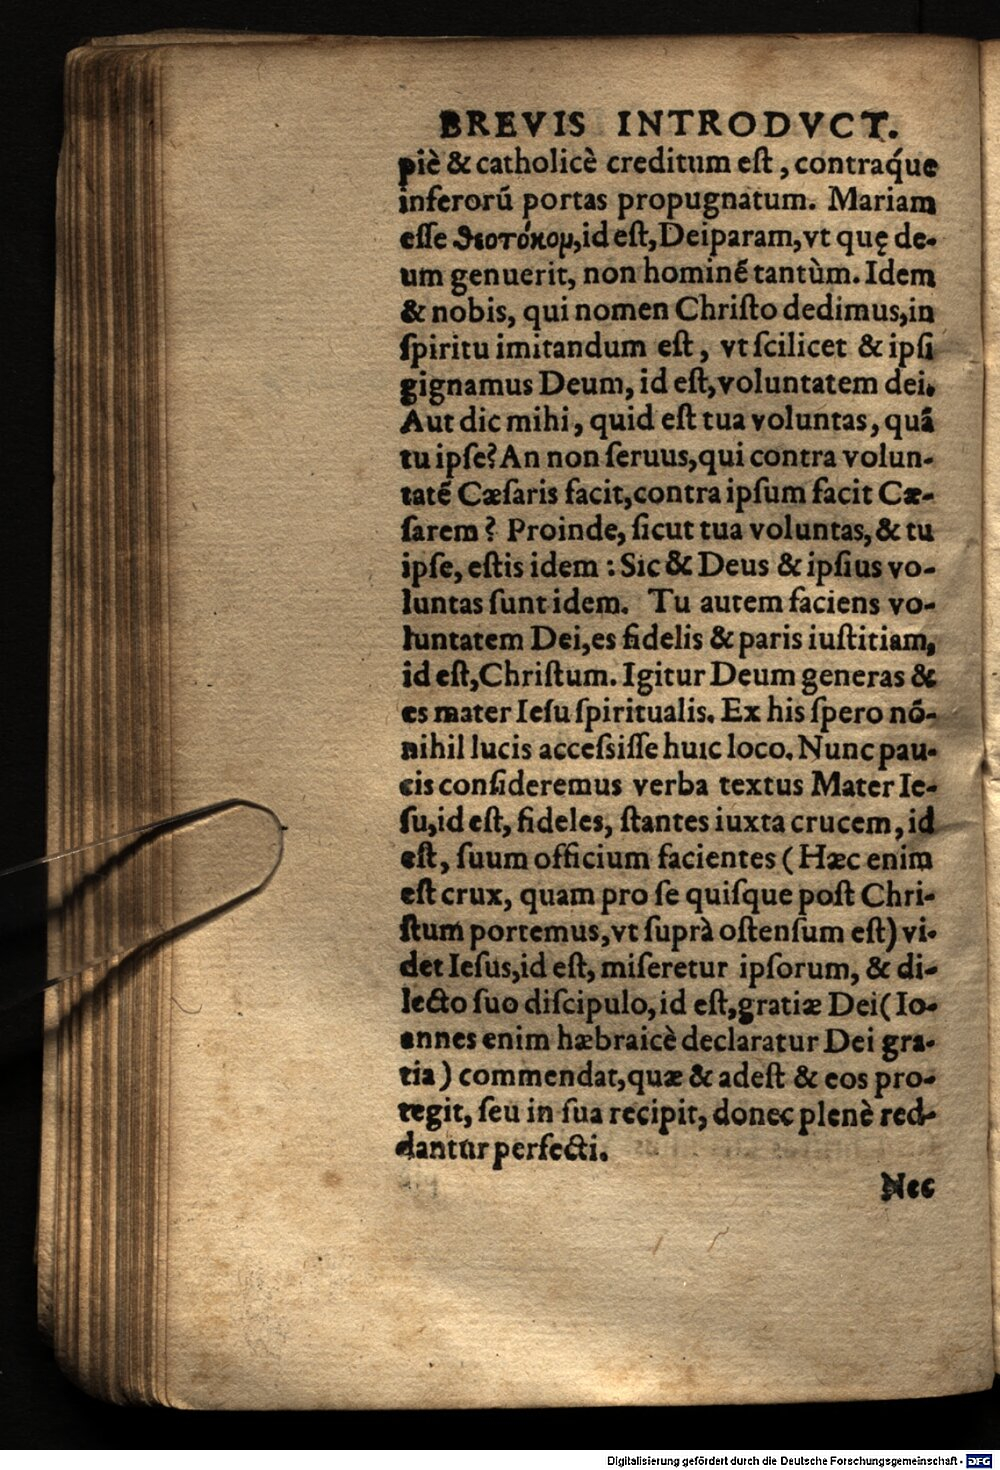 BREVIS INTRODVCT.
piè & catholicè creditum eſt, contraq́ue
inferorũ portas propugnatum. Mariam
eſſe ϑεοτόκομ, id eſt, Deiparam, vt quę de-
um genuerit, non hominẽ tantùm. Idem
& nobis, qui nomen Chriſto dedimus, in
ſpiritu imitandum eſt, vt ſcilicet & ipſi
gignamus Deum, id eſt, voluntatem dei.
Aut dic mihi, quid eſt tua voluntas, quã
tu ipſe? An non ſeruus, qui contra volun-
tatẽ Cæſaris facit, contra ipſum facit Cæ-
ſarem? Proinde, ſicut tua voluntas, & tu
ipſe, eſtis idem: Sic & Deus & ipſius vo-
luntas ſunt idem. Tu autem faciens vo-
luntatem Dei, es fidelis & paris iuſtitiam,
id eſt, Chriſtum. Igitur Deum generas &
es mater Ieſu ſpiritualis. Ex his ſpero nõ-
nihil lucis acceſsiſſe huic loco. Nunc pau-
cis conſideremus verba textus Mater Ie-
ſu, id eſt, fideles, ſtantes iuxta crucem, id
eſt, ſuum officium facientes (Hæc enim
eſt crux, quam pro ſe quiſque poſt Chri-
ſtum portemus, vt ſuprà oſtenſum eſt) vi-
det Ieſus, id eſt, miſeretur ipſorum, & di-
lecto ſuo diſcipulo, id eſt, gratiæ Dei (Io-
annes enim hæbraicè declaratur Dei gra-
tia) commendat, quæ & adeſt & eos pro-
tegit, ſeu in ſua recipit, donec plenè red-
dantur perfecti.
Nec
Digitalisierung gefördert durch die Deutsche Forschungsgemeinschaft - DFG